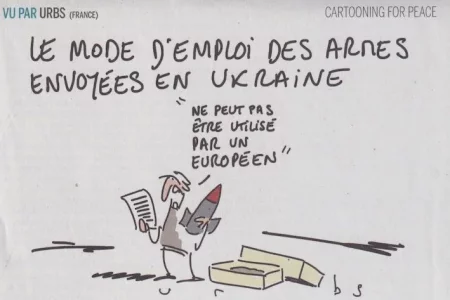 VU PAR URBS (FRANCE)
CARTOONING FOR PEACE
LE MODE D'EMPLOI DES ARMES
ENVOYÉES EN UKRAINE
"NE PEUT PAS
ÊTRE UTILISÉ
PAR UN
EUROPÉEN"
u r b s